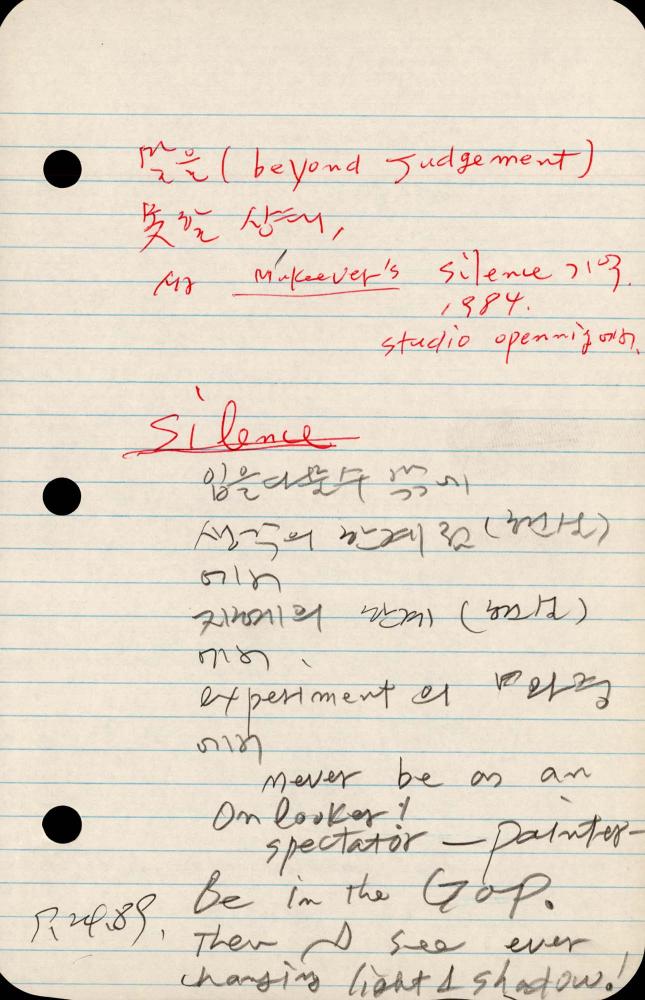 말을 (beyond Judgement)
못할 상태,
Mckeever's silence 기억.
1984.
studio openning에서.
Silence
입을 다물수 밖에
생육의 한계
에서
의 관계
에서.
experiment 의 과정
에서
never be as an
Onlooker!
spectator — painter —
Be in the Gap.
7.24.89.
Then I see ever
changing light & shadow!